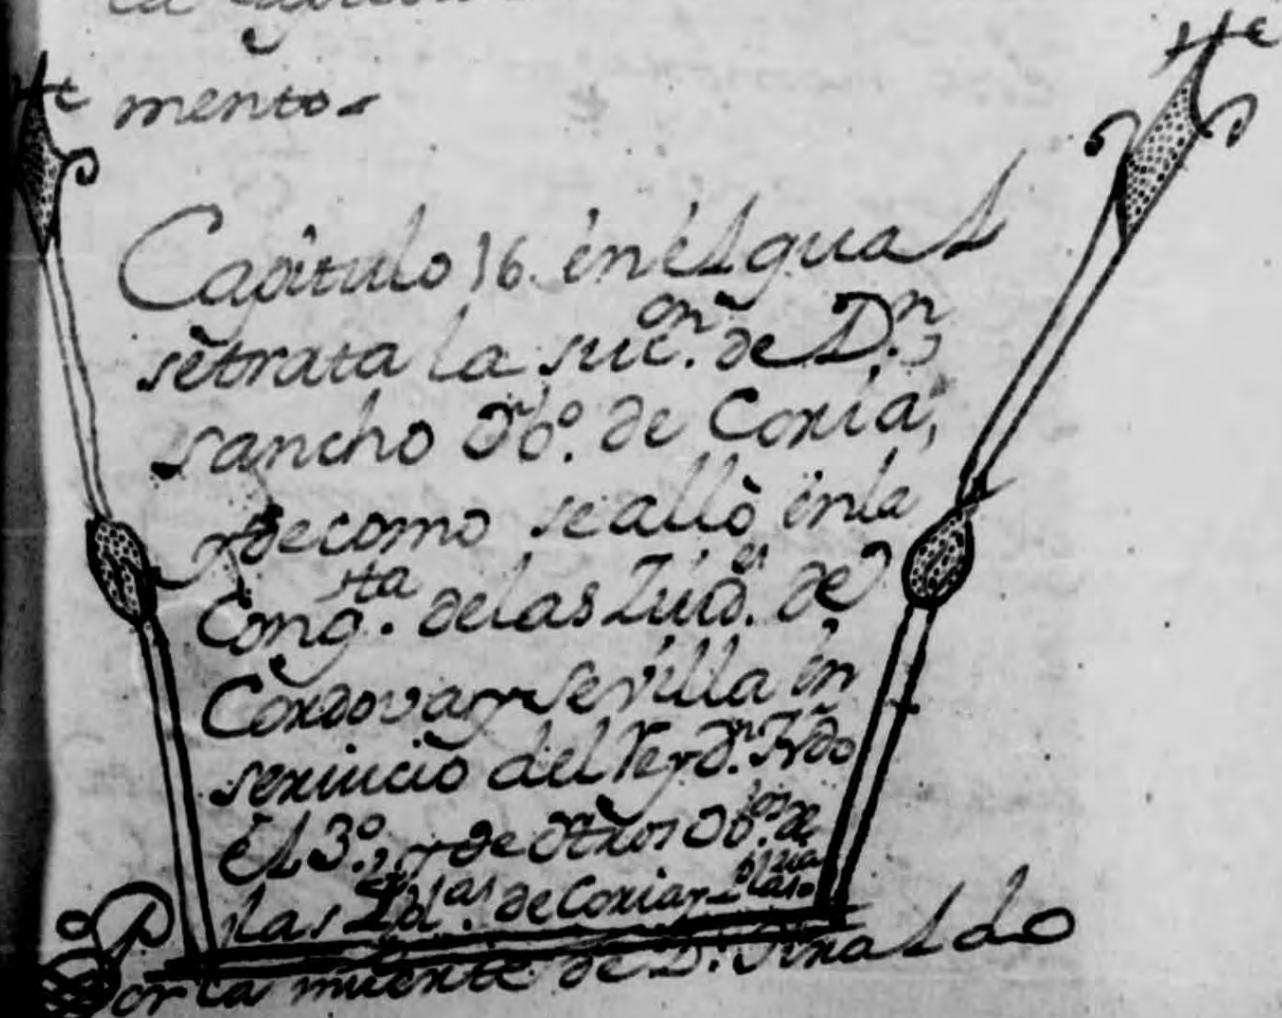 mento-
Capitulo 16. en el qual
se trata la suc.on de D.n
sancho Ob.o de Coria,
y de como se allò en la
Conq.sta de las Ziud.es de
Cordova y sevilla en
seruicio del Rey d.n Frdo
el 3.o, y de otros Ob.os de
las Ygl.as de Coria y Plasa
Por la muerte de D. Jiraldo